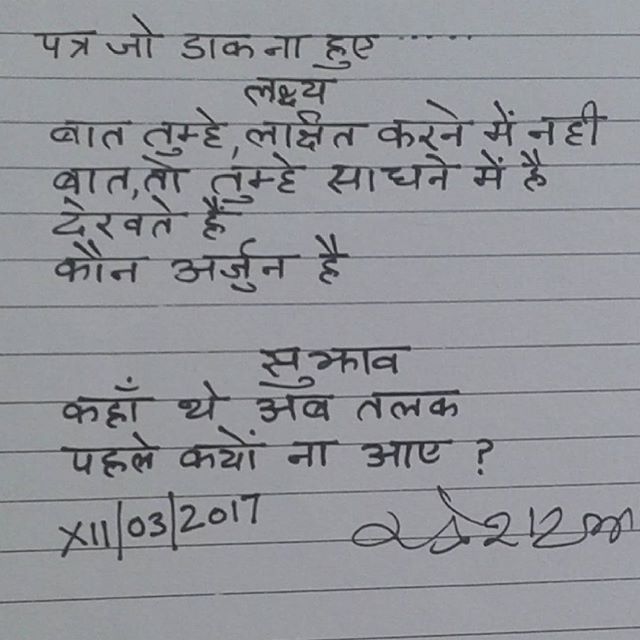 पत्र जो डाक ना हुए ......
लक्ष्य
बात तुम्हे, लाक्षित करने में नही
बात, तो तुम्हे साधने में है
देखते हैं
कौन अर्जुन है
सुझाव
कहाँ थे अब तलक
पहले क्यों ना आए ?
XII/03/2017